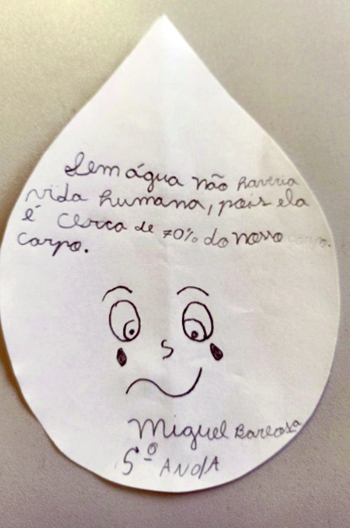 Sem água não haveria
vida humana, pois ela
é cerca de 70% do nosso corpo.
corpo.
Miguel Barbosa
5º Ano/A